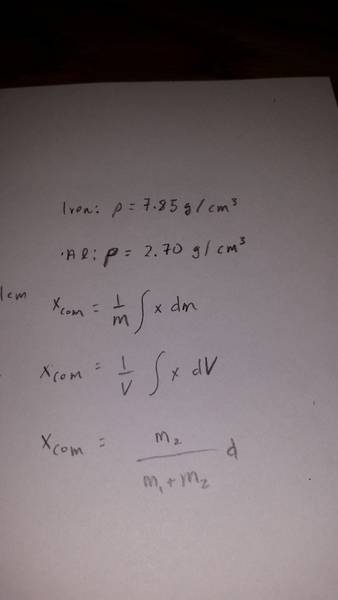 Iron: ρ = 7.85 g/cm³
Al: ρ = 2.70 g/cm³
1cm
x_com = 1/m ∫ x dm
x_com = 1/V ∫ x dV
x_com = m₂/(m₁+m₂) d